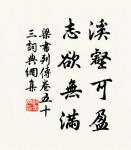 溪壑可盈
志欲無滿
梁書列傳卷五十
三詞典網集